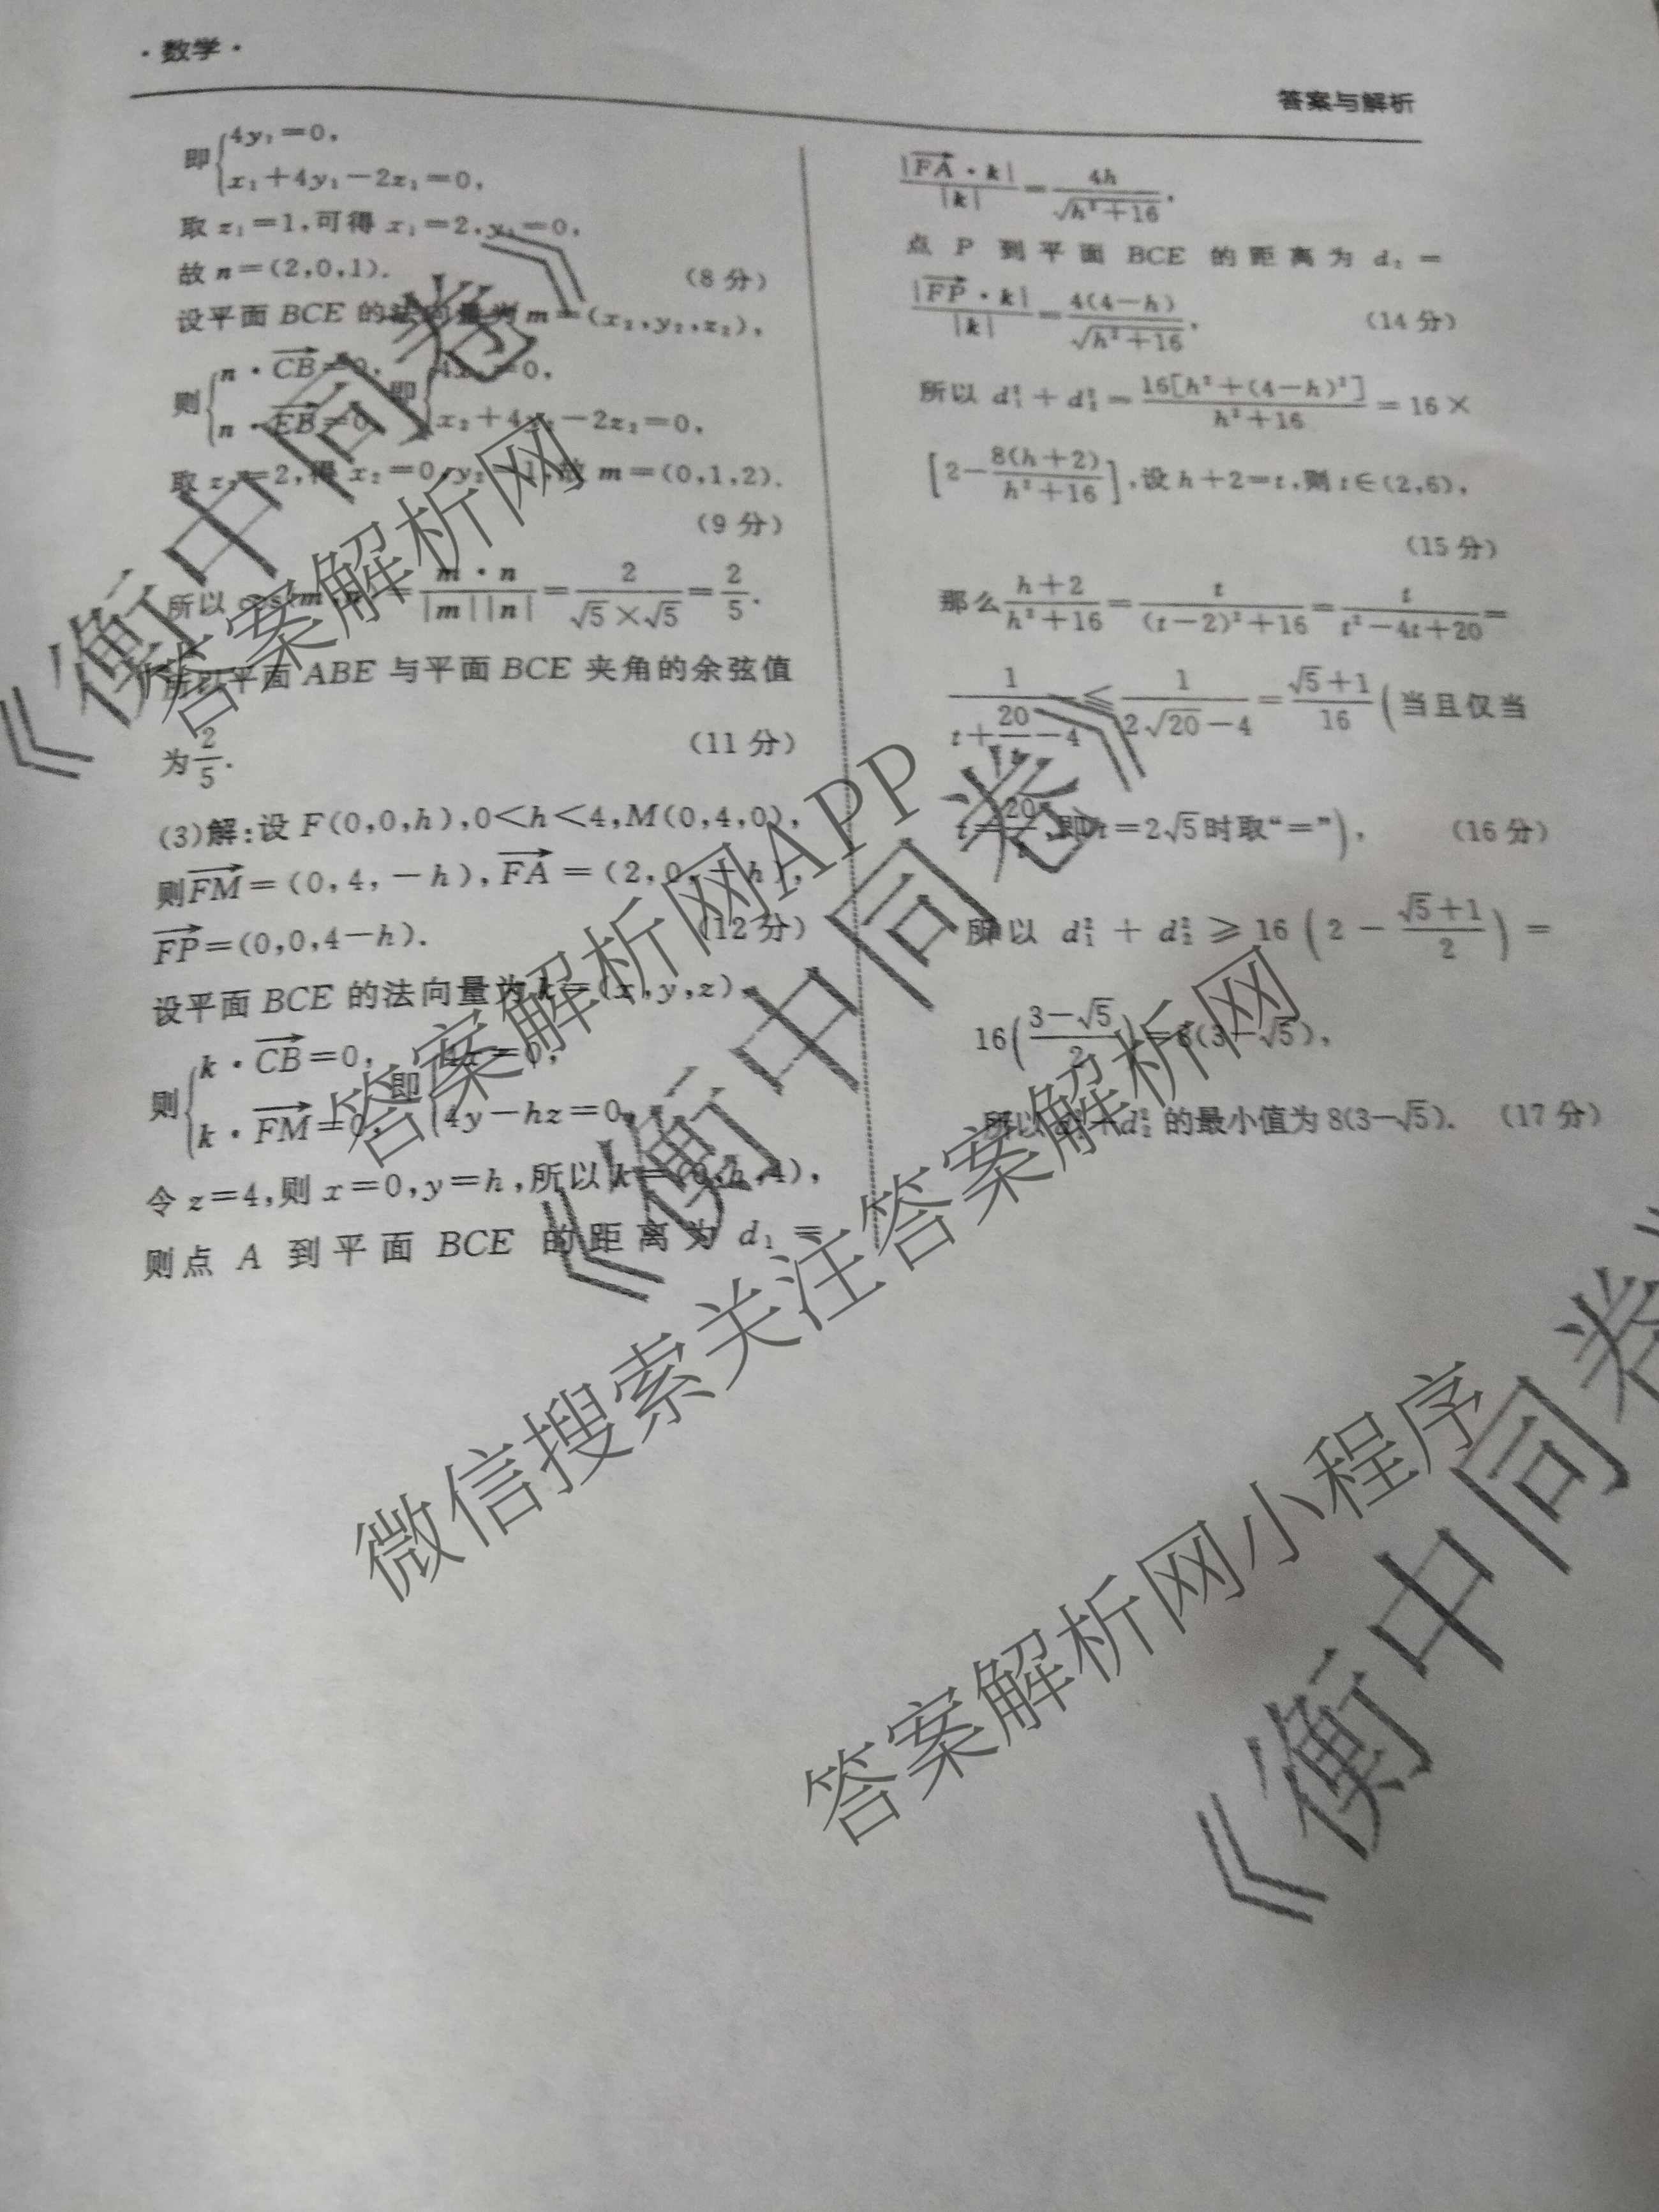 ·数学·
答案与解析
即{4y₁=0,
x₁+4y₁-2z₁=0,
取 z₁=1,可得 x₁=2,y₁=0,
故 n=(2,0,1). (8 分)
设平面 BCE 的法向量为 m=(x₂,y₂,z₂),
则{n·CB=0, 即{4x₂=0,
n·EB=0, x₂+4y₂-2z₂=0,
取 z₂=2,得 x₂=0,y₂=1,故 m=(0,1,2).
(9 分)
所以 cos⟨m,n⟩=m·n/(|m||n|)=2/(√5×√5)=2/5.
所以平面 ABE 与平面 BCE 夹角的余弦值
为2/5. (11 分)
(3)解:设 F(0,0,h),0<h<4,M(0,4,0),
则FM=(0,4,-h),FA=(2,0,-h),
FP=(0,0,4-h). (12 分)
设平面 BCE 的法向量为 k=(x,y,z),
则{k·CB=0, 即{4x=0,
k·FM=0, 4y-hz=0,
令 z=4,则 x=0,y=h,所以 k=(0,h,4),
则点 A 到平面 BCE 的距离为 d₁=
|FA·k|/|k|=4h/√(h²+16),
点 P 到平面 BCE 的距离为 d₂=
|FP·k|/|k|=4(4-h)/√(h²+16), (14 分)
所以 d₁²+d₂²=16[h²+(4-h)²]/(h²+16)=16×
[2-8(h+2)/(h²+16)],设 h+2=t,则 t∈(2,6),
(15 分)
那么(h+2)/(h²+16)=t/((t-2)²+16)=t/(t²-4t+20)=
1/(t+20/t-4)≤1/(2√20-4)=(√5+1)/16(当且仅当
t=20/t,即 t=2√5时取“=”), (16 分)
所以 d₁²+d₂²≥16(2-(√5+1)/2)=
16((3-√5)/2)=8(3-√5),
所以 d₁²+d₂² 的最小值为 8(3-√5). (17 分)
《衡中同卷》
答案解析网
答案解析网APP
《衡中同卷》
微信搜索关注答案解析网
答案解析网小程序
《衡中同卷》